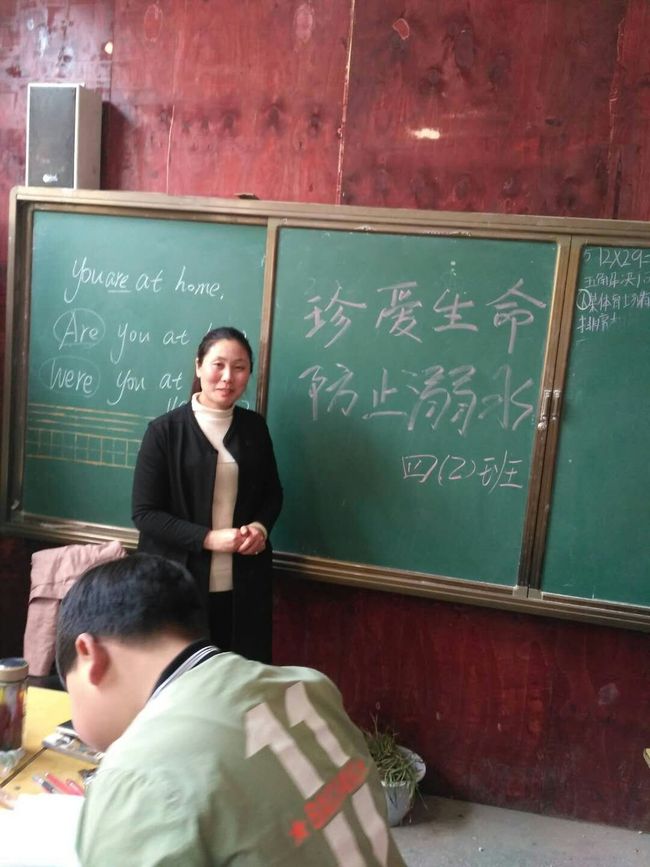 you are at home.
Are you at
Were you at
珍爱生命
防止溺水
四(2)班
12×29=
11